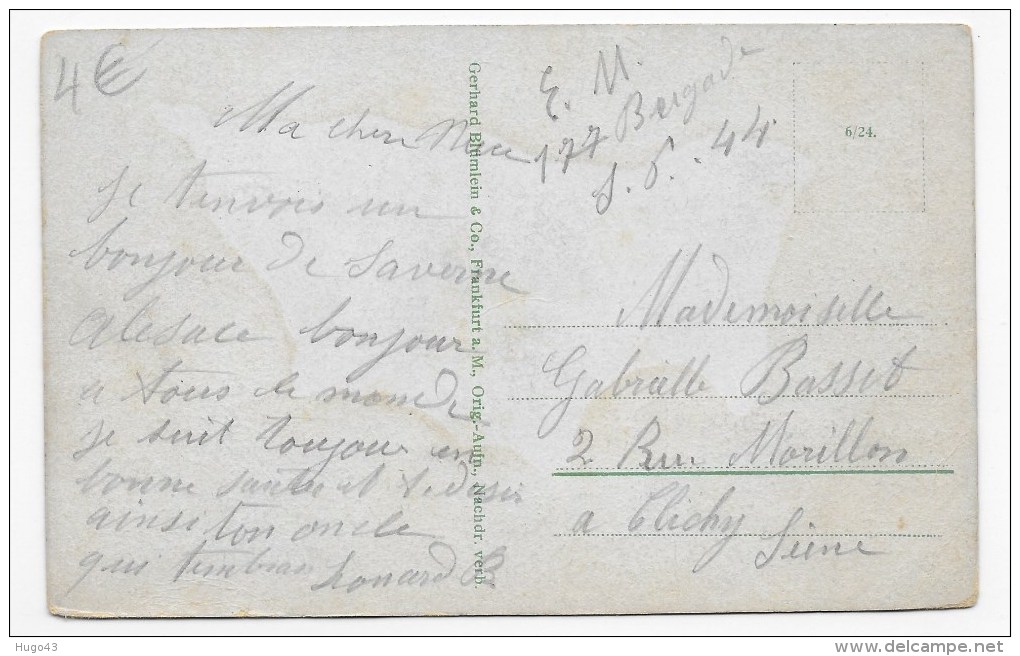 4 €
E. M.
177 Brigade
S. P. 44
6/24.
Ma cher Niece
je tenvois un
bonjour de Saverne
alesace bonjour
a tous le monde
je suit toujour en
bonne santer et te desir
ainsi ton oncle
qui tembras Leonard B
Gerhard Blümlein & Co., Frankfurt a. M., Orig.-Aufn., Nachdr. verb.
Mademoiselle
Gabrielle Basset
2 Rue Morillon
a Clichy
Seine
Hugo43
www.delcampe.net